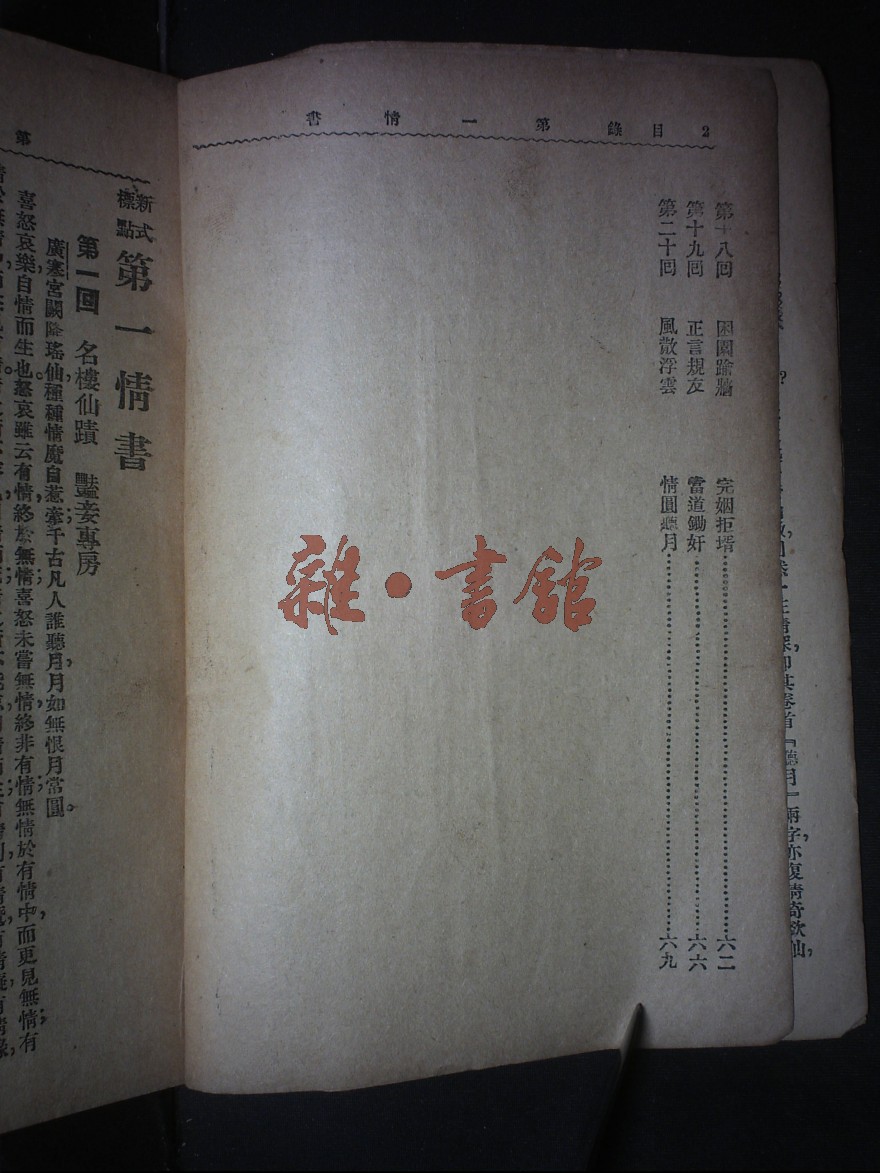 2 目錄 第一情書
第十八回 困園踰牆 完姻拒壻 六二
第十九回 正言規友 當道鋤奸 六六
第二十回 風散浮雲 情圓聽月 六九
雜·書館
第
新式標點 第一情書
第一回 名樓仙蹟 豔妾專房
廣寒宮闕降瑤仙,種種情魔自惹牽;千古凡人誰聽月,月如無恨月常圓。
喜怒哀樂,自情而生也。怒哀雖云有情,終於無情;喜怒未嘗無情,終非有情;無情於有情中,而更見無情;有
在情深,卽其卷首『聽月』兩字,亦復清奇欲仙,